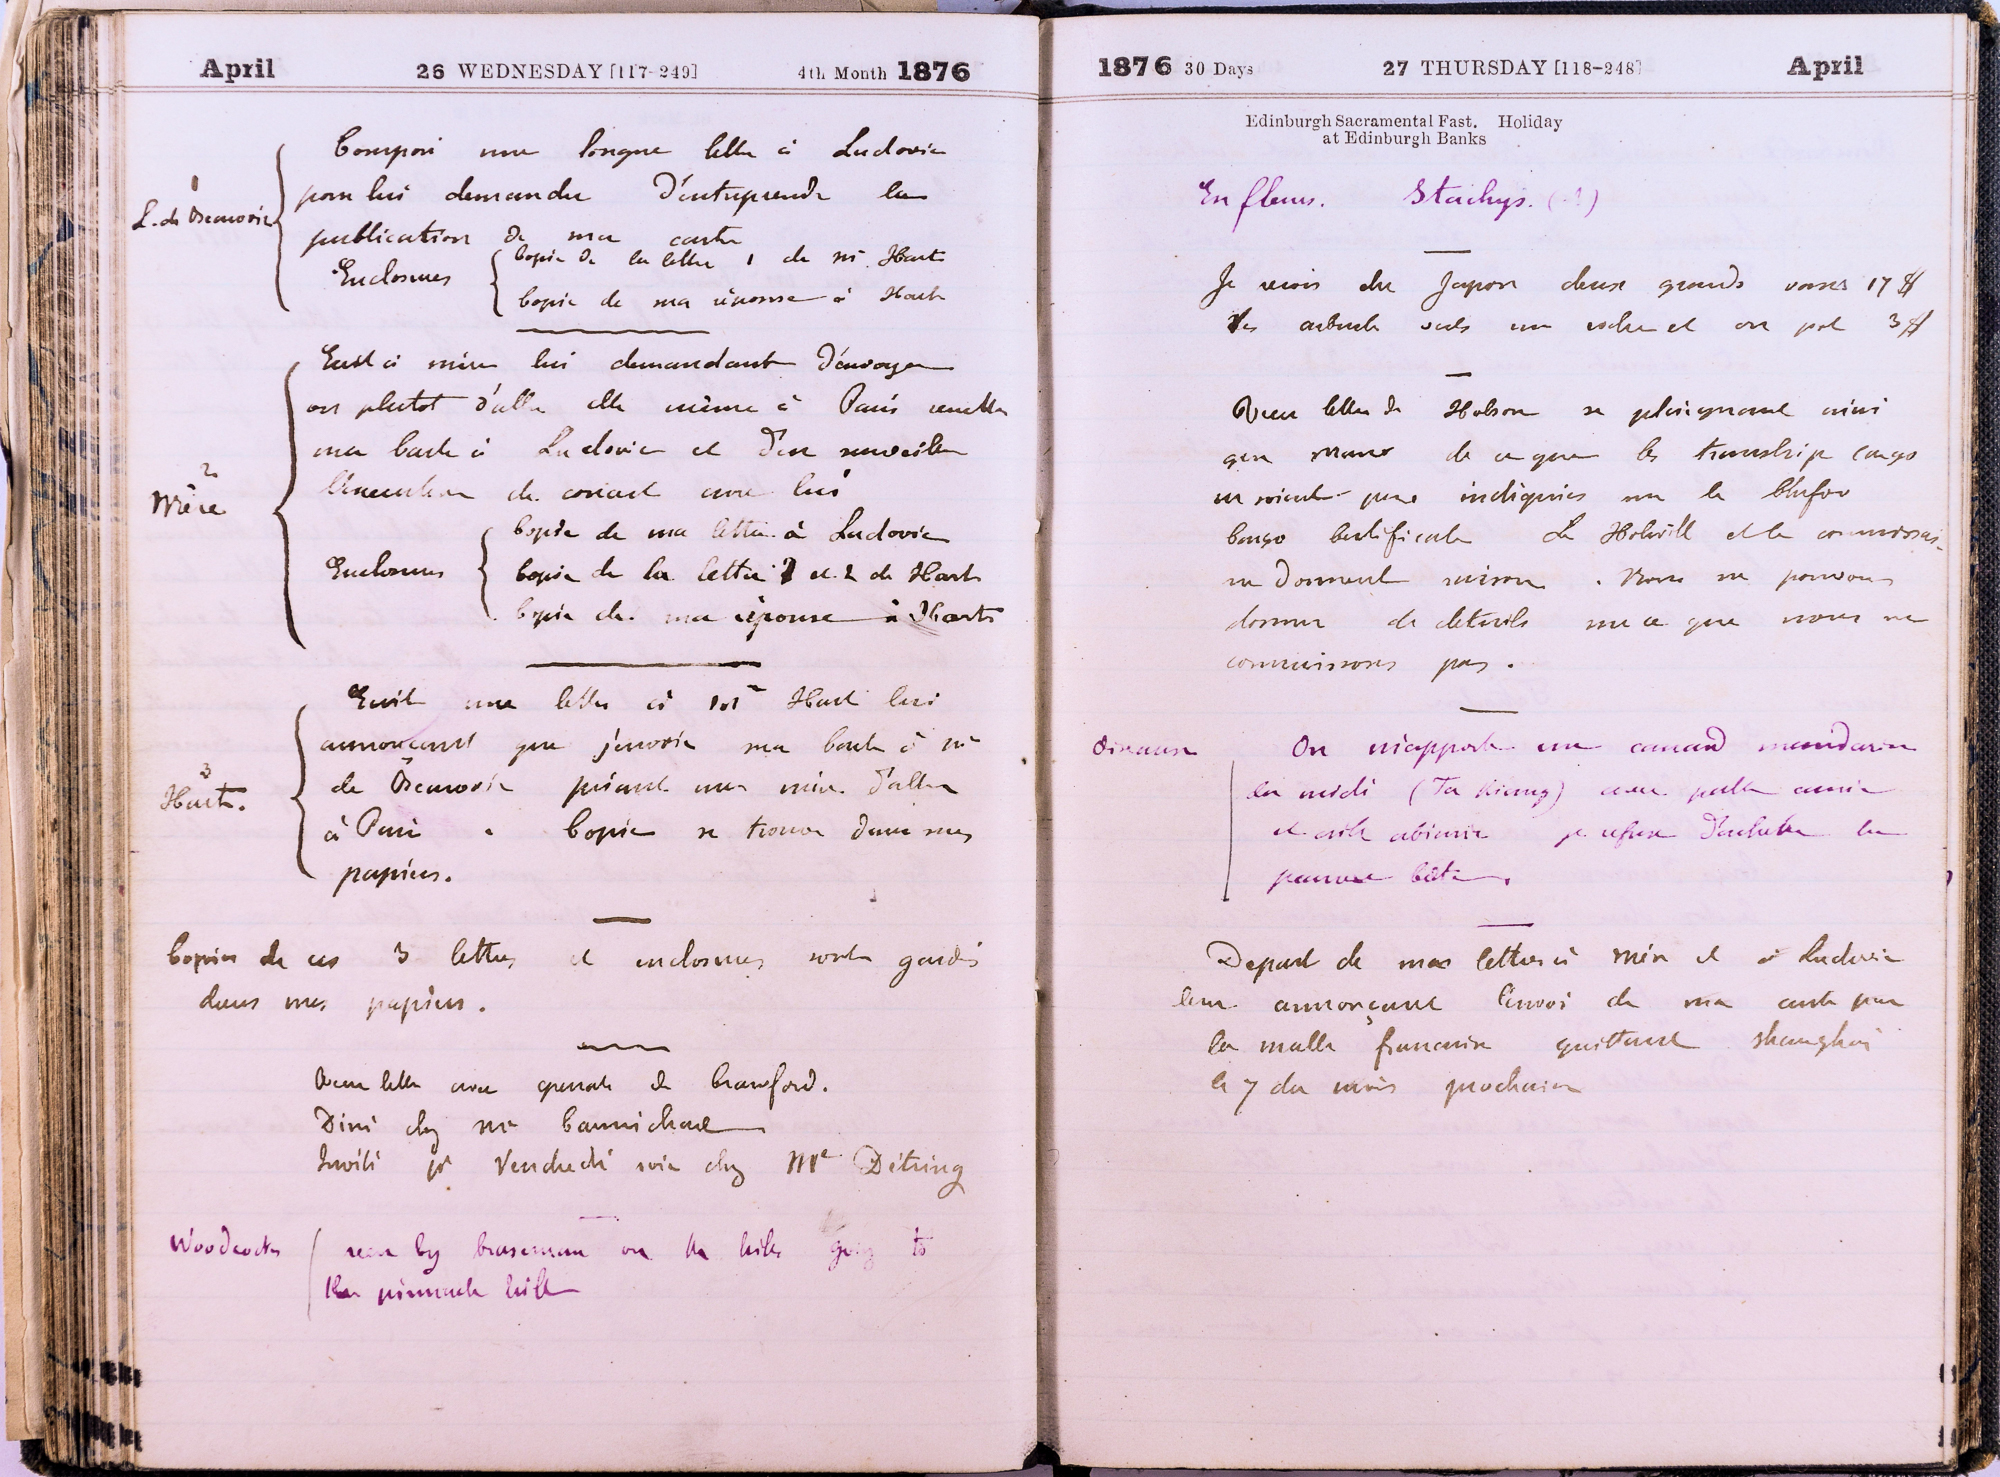 April 26 WEDNESDAY [117-249] 4th Month 1876
1
L. de Beauvoir
Composé une longue lettre à Ludovic
pour lui demander d'entreprendre la
publication de ma carte
Enclosures
Copie de la lettre 1 de Mr Hart
Copie de ma réponse à Hart
2
Mère
Ecrit à mère lui demandant d'envoyer
ou plutot d'aller elle même à Paris remettre
ma Carte à Ludovic et d'en surveiller
l'execution de concert avec lui
Enclosures
Copie de ma lettre à Ludovic
Copie de la lettre 1 et 2 de Hart
Copie de ma réponse à Hart
3
Hart.
Ecrit une lettre à Mr Hart lui
annoncant que j'envoie ma Carte à Mr
de Beauvoir priant ma mère d'aller
à Paris. Copie se trouve dans mes
papiers.
Copies de ces 3 lettres et enclosures sont gardés
dans mes papiers.
Reçu lettre avec de Crawford.
Diné chez Mr Carmichael
Invité pr Vendredi soir chez Mr Détring
Woodcocks
seen by on the hills going to
the pinnacle hill
1876 30 Days 27 THURSDAY [118-248] April
Edinburgh Sacramental Fast. Holiday
at Edinburgh Banks
En fleurs. Stachys.
Je reçois du Japon deux grands vases 17 $
et un pot 3 $
Reçu lettre de Hobson se plaignant ainsi
que de ce que les tranship cargo
ne soient pas indiqués sur le Chefoo
Cargo Certificate Le et le
me donnent raison. Nous ne pouvons
donner de détails sur ce que nous ne
connaissons pas.
Oiseaux
On m'apporte un canard mandarin
le midi (Ta Kiang) avec patte
et aile abimée je refuse d'acheter la
pauvre bête.
Depart de mes lettres à Mère et à Ludovic
leur annonçant l'envoi de ma carte par
la malle francaise quittant Shanghai
le 7 du mois prochain